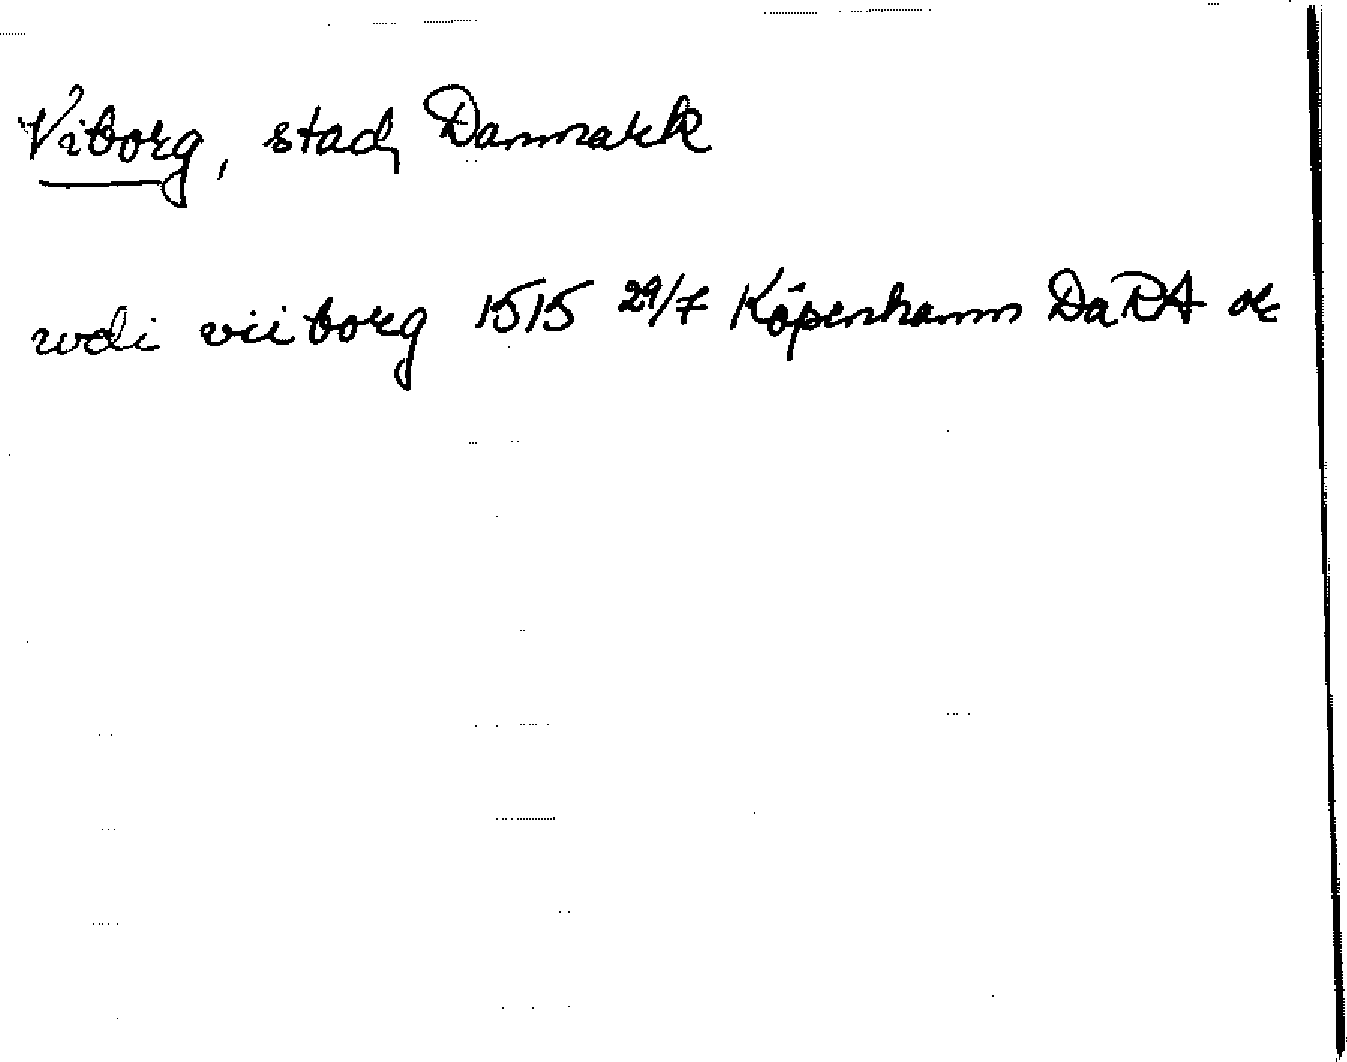 Viborg, stad, Danmark
wdi viiborg 1515 29/7 Köpenhamn DaRA